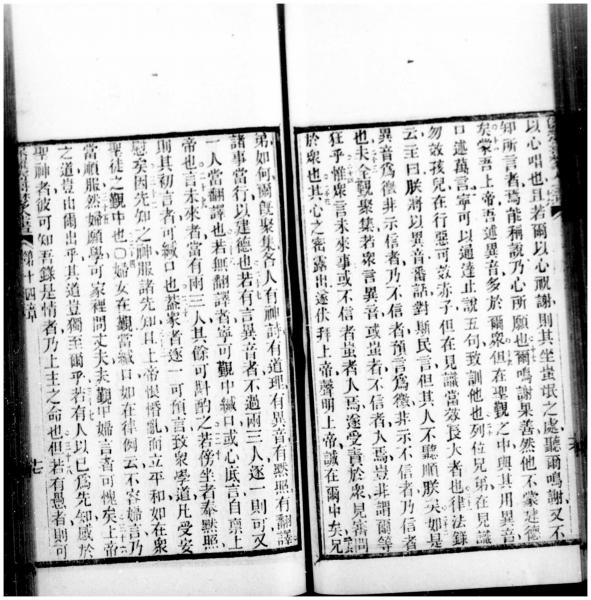 以心唱也且若爾以心祝謝則其坐蚩氓之處聽爾鳴謝又不
知所言者焉能稱說乃心所願也爾鳴謝果善然他不蒙建德
矣蒙吾上帝吾述異音多於爾衆但在聖觀之中與其用異言
口述萬言寧可以通達止說五句致訓他也列位兄弟在見識
勿效孩兒在行惡可效赤子但在見識當效長大者也律法錄
云主曰朕將以異音番話對斯民言但其人不聽順朕矣如是
異音爲徵非示信者乃不信者預言爲徵非示不信者乃信者
也夫全觀聚集若衆言異音或蚩者不信者入焉豈非謂爾等
狂乎惟衆言未來事或不信者蚩者人焉遂受責於衆見審問
於衆也其心之密露出遂伏拜上帝聲明上帝誠在爾中矣兄
弟如何爾旣聚集各人有神詩有道理有異音有默照有翻譯
諸事當行以建德也若有言異音者不過兩三人逐一則可又
一人當翻譯也若無翻譯者寧可觀中緘口或心底言自禀上
帝也言未來者當有兩三人其餘可斟酌之若傍坐者奉默照
則其初言者可緘口也蓋家者逐一可預言致衆學道凡受安
慰矣因先知之神服諸先知且上帝恨惛亂而立平和如在衆
聖徒之觀中也〇婦女在觀當緘口如在律例云不容婦言乃
當順服然婦願學可家裡問丈夫夫觀中婦言者可愧矣上帝
之道豈出爾出乎其道豈獨至爾乎若有人以已爲先知感於
聖神者彼可知吾錄是情者乃上主之命也但若有愚者則可
第十四章